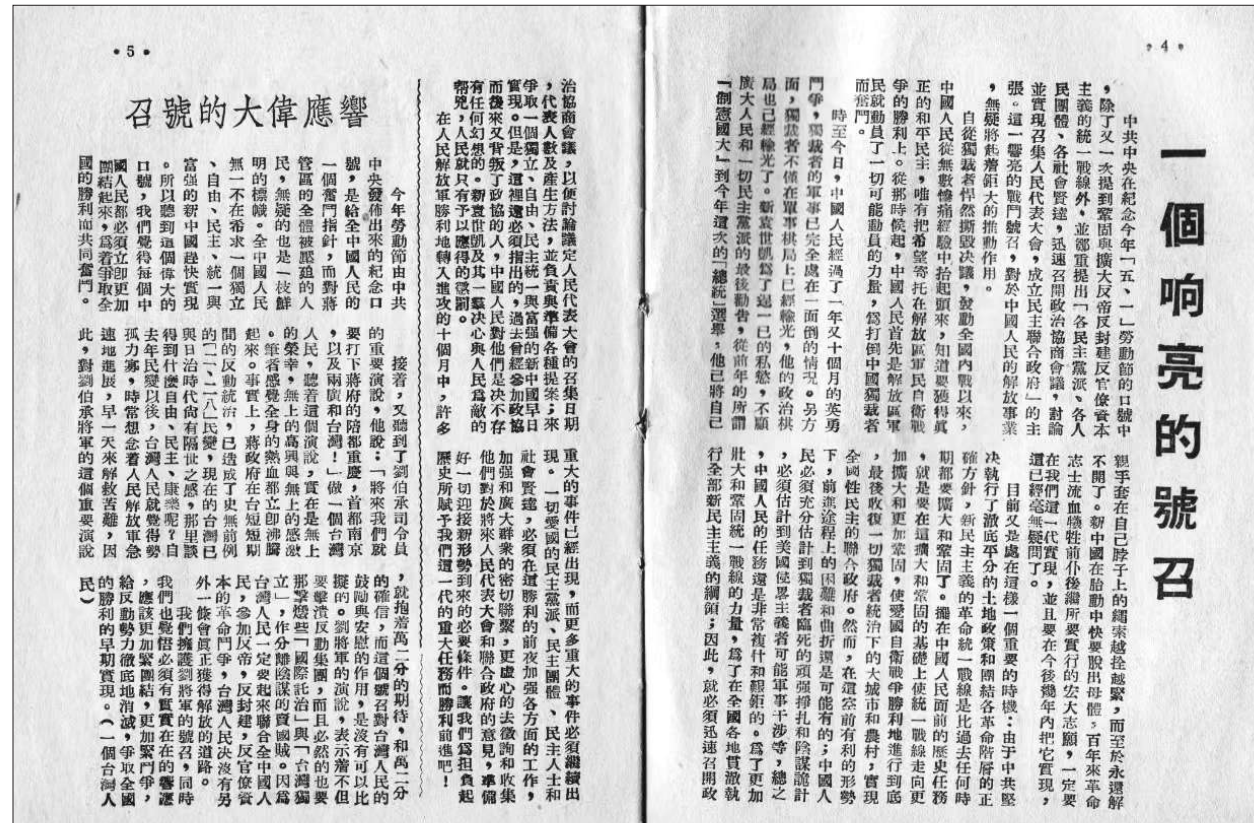 •4•
一個响亮的號召
中共中央在紀念今年「五、一」勞動節的口號中
，除了又一次提到鞏固與擴大反帝反封建反官僚資本
主義的統一戰線外，並鄭重提出「各民主黨派、各人
民團體、各社會賢達，迅速召開政治協商會議，討論
並實現召集人民代表大會，成立民主聯合政府」的主
張。這一響亮的戰鬥號召，對於中國人民的解放事業
，無疑將起着鉅大的推動作用。
自從獨裁者悍然撕毀决議，發動全國內戰以來，
中國人民從無數慘痛經驗中抬起頭來，知道要獲得眞
正的和平民主，唯有把希望寄托在解放區軍民自衛戰
爭的勝利上。從那時候起，中國人民首先是解放區軍
民就動員了一切可能動員的力量，爲打倒中國獨裁者
而奮鬥。
時至今日，中國人民經過了一年又十個月的英勇
鬥爭，獨裁者的軍事已完全處在一面倒的情况。另方
面，獨裁者不僅在軍事棋局上已經輸光，他的政治棋
局也已經輸光了。新袁世凱爲了逞一已的私慾，不顧
廣大人民和一切民主黨派的最後勸告，從前年的所謂
「制憲國大」到今年這次的「總統」選舉，他已將自己
親手套在自己脖子上的繩索越拴越緊，而至於永遠解
不開了。新中國在胎動中快要脫出母體，百年來革命
志士流血犧牲前仆後繼所要實行的宏大志願，一定要
在我們這一代實現，並且要在今後幾年內把它實現，
這已經毫無疑問了。
目前又是處在這樣一個重要的時機：由于中共堅
决執行了澈底平分的土地政策和團結各革命階層的正
確方針，新民主主義的革命統一戰線是比過去任何時
期都要擴大和鞏固了。擺在中國人民面前的歷史任務
，就是要在這擴大和鞏固的基礎上使統一戰線走向更
加擴大和更加鞏固，使愛國自衛戰爭勝利地進行到底
，最後收復一切獨裁者統治下的大城市和農村；實現
全國性民主的聯合政府。然而，在這空前有利的形勢
下，前進途程上的困難和曲折還是可能有的；中國人
民必須充分估計到獨裁者臨死的頑强掙扎和陰謀詭計
，必須估計到美國侵畧主義者可能軍事干涉等，總之
，中國人民的任務還是非常複什和艱鉅的。爲了更加
壯大和鞏固統一戰線的力量，爲了在全國各地貫澈執
行全部新民主主義的綱領；因此，就必須迅速召開政
•5•
治協商會議，以便討論議定人民代表大會的召集日期
，代表人數及產生方法，並負責與準備各種提案；來
爭取一個獨立、自由、民主統一與富强的新中國早日
實現。但是，這裡還必須指出的，過去曾經參加政協
而後來又背叛了政協的人，中國人民對他們是决不存
有任何幻想的。新袁世凱及其一羣决心與人民爲敵的
幫兇，人民就只有予以應得的懲罰。
在人民解放軍勝利地轉入進攻的十個月中，許多
重大的事件已經出現，而更多重大的事件必須繼續出
現。一切愛國的民主黨派、民主團體、民主人士和
社會賢達，必須在這勝利的前夜加强各方面的工作，
加强和廣大群衆的密切聯繫，更虛心的去徵詢和收集
他們對於將來人民代表大會和聯合政府的意見，準備
好一切迎接新形勢到來的必要條件。讓我們爲担負起
歷史所賦予我們這一代的重大任務而勝利前進吧！
響應偉大的號召
今年勞動節由中共
中央發佈出來的紀念口
號，是給全中國人民的
一個奮鬥指針，而對蔣
管區的全體被壓廹的人
民，無疑的也是一枝鮮
明的標幟。全中國人民
無一不在希求一個獨立
、自由、民主、統一與
富强的新中國趕快實現
。所以聽到這個偉大的
口號，我們覺得每個中
國人民都必須立卽更加
團結起來，爲着爭取全
國的勝利而共同奮鬥。
接着，又聽到了劉伯承司令員
的重要演說，他說：「將來我們就
要打下蔣府的陪都重慶，首都南京
，以及兩廣和台灣！」做一個台灣
人民，聽着這個演說，實在是無上
的榮幸，無上的高興與無上的感激
。筆者感覺全身的熱血都立卽沸騰
起來。事實上，蔣政府在台短短期
間的反動統治，已造成了史無前例
的「二、二八」民變，現在的台灣已
與日治時代尙有隔世之感，那里談
得到什麽自由、民主、康樂呢？自
去年民變以後，台灣人民就覺得勢
孤力薄，時常想念着人民解放軍急
速地進展，早一天來解救苦難，因
此，對劉伯承將軍的這個重要演說
，就抱着萬二分的期待，和萬二分
的確信，而這個號召對台灣人民的
鼓勵與安慰的作用，是沒有可以比
擬的。劉將軍的演說，表示着不但
要擊潰反動集團，而且必然的也要
那擊燬些「國際託治」與「台灣獨
立」，作分離陰謀的賣國賊。因爲
台灣人民一定要起來聯合全中國人
民，參加反帝，反封建，反官僚資
本的革命鬥爭，台灣人民决沒有另
外一條會眞正獲得解放的道路。
我們擁護劉將軍的號召，同時
我們也覺悟必須有實實在在的響應
，應該更加緊團結，更加緊鬥爭，
給反動勢力徹底地消滅，爭取全國
的勝利的早期實現。（一個台灣人
民）